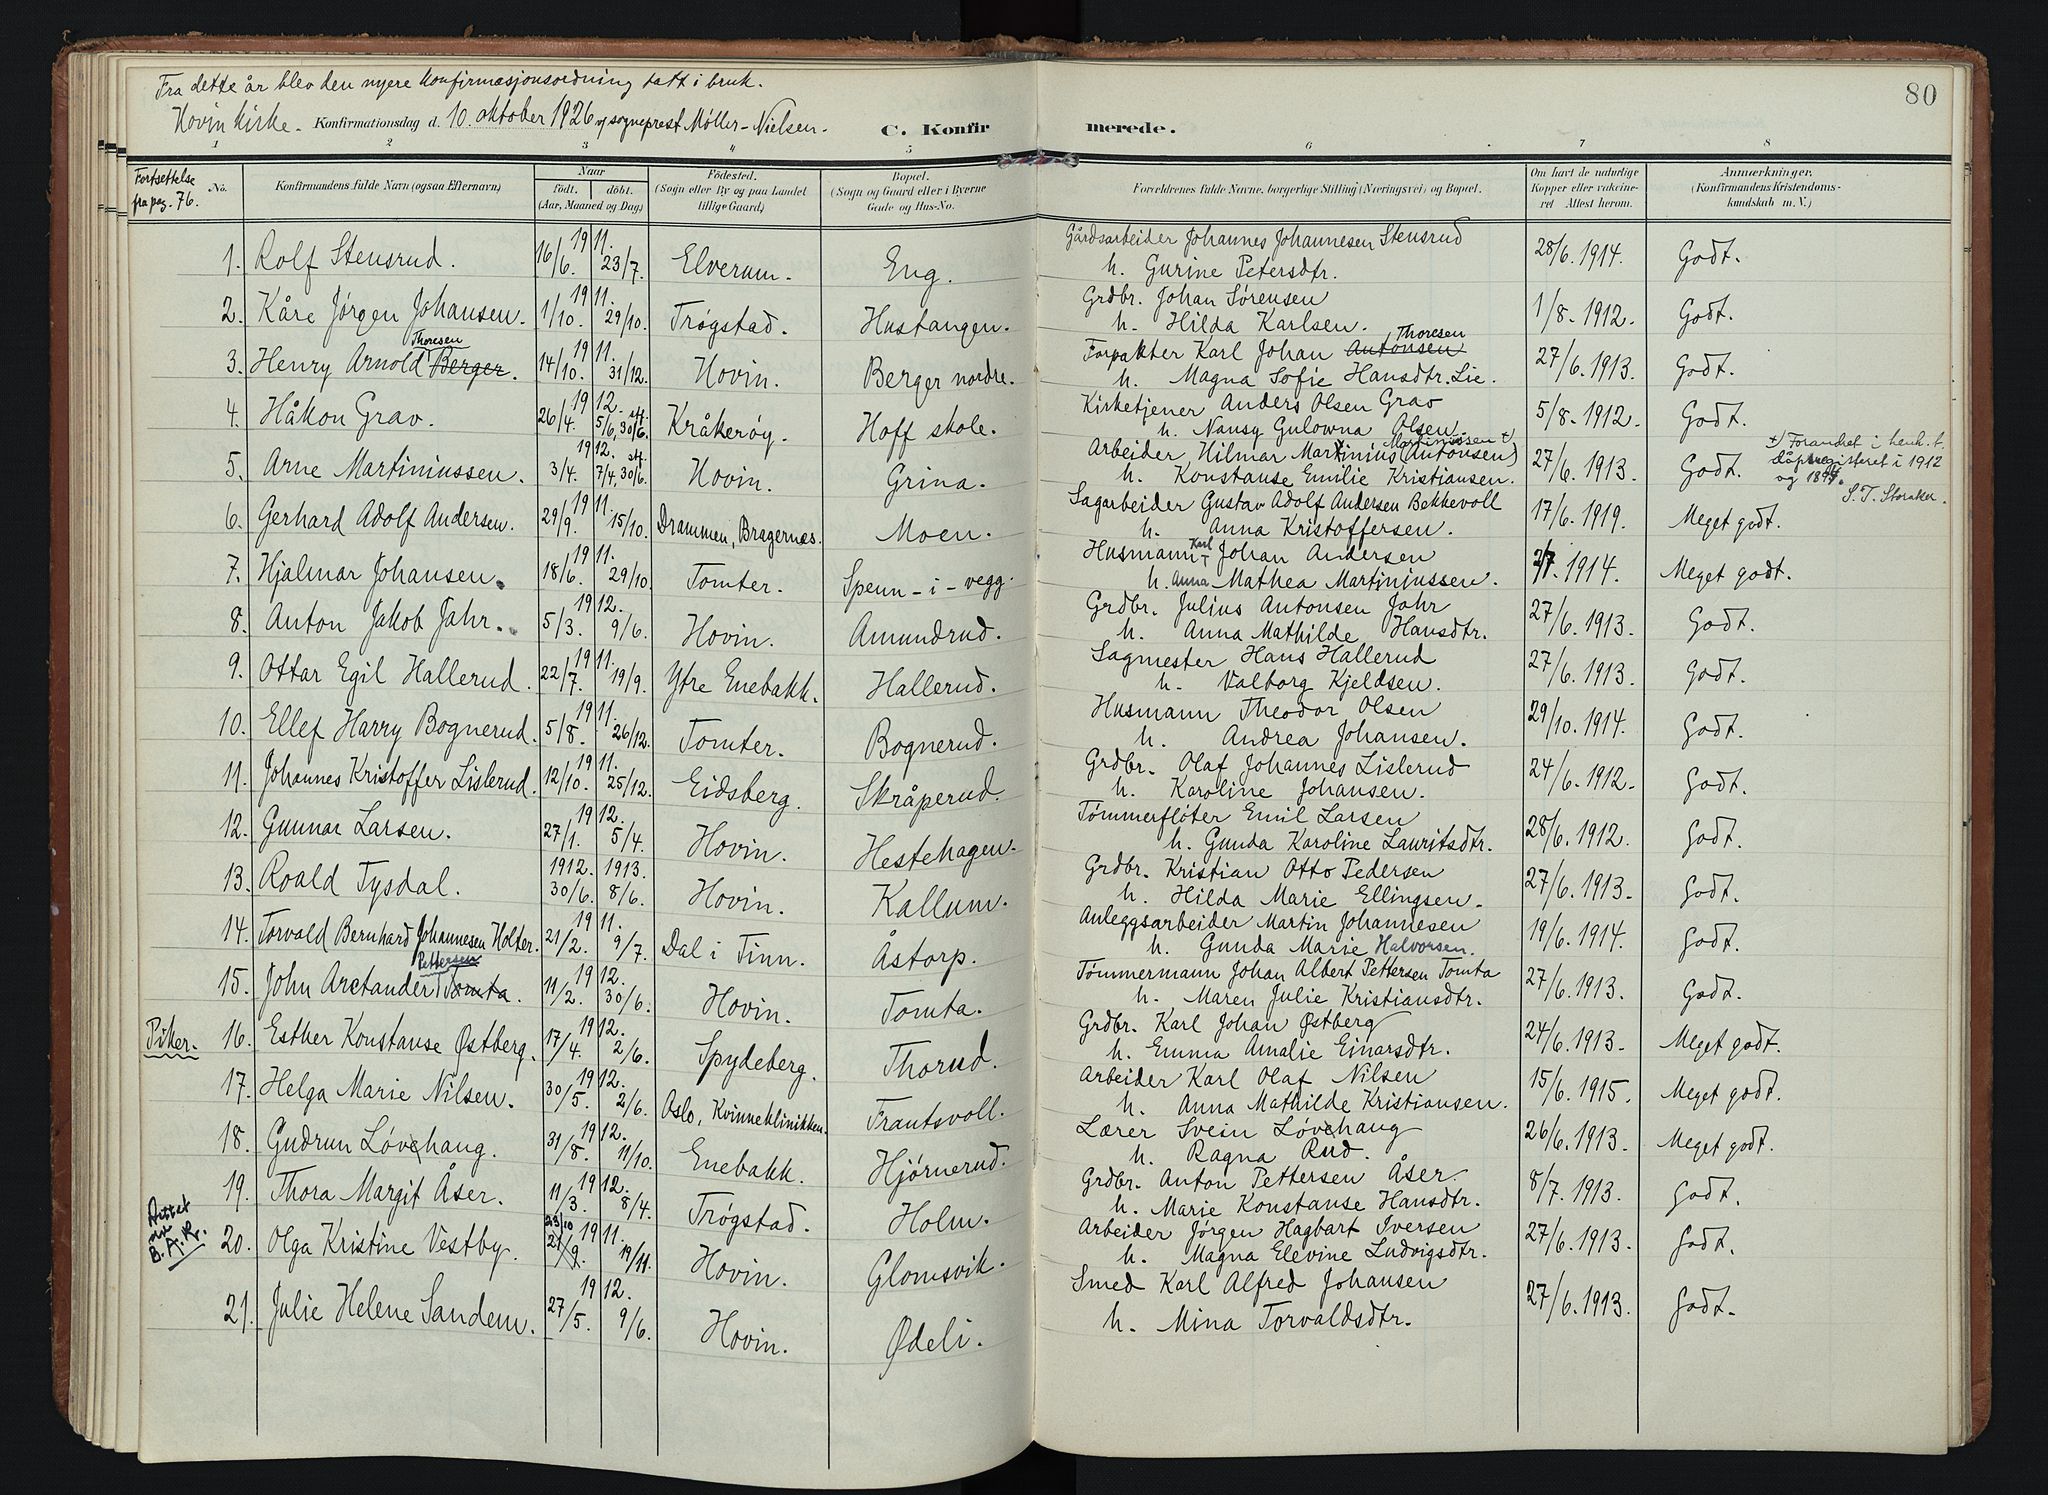 80
Fra dette år blev den nyere konfirmasjonsordning tatt i bruk.
Hovin kirke. Konfirmationsdag d. 10. oktober 1926 v/ sogneprest Møller-Nielsen. C. Konfirmerede.
1 2 3 4 5 6 7 8
Fortsettelse fra pag. 76.
No. Konfirmandens fulde Navn (ogsaa Efternavn) Naar født. døbt. (Aar, Maaned og Dag) Fødested. (Sogn eller By og paa Landet tillige Gaard) Bopæl. (Sogn og Gaard eller i Byerne Gade og Hus-No. Forældrenes fulde Navne, borgerlige Stilling (Næringsvei) og Bopæl. Om havt de naturlige Kopper eller vakcineret Attest herom. Anmærkninger. (Konfirmandens Kristendomskundskab m. V.)
1. Rolf Stensrud. 1911. 16/6. 23/7. Elverum. Eng. Gårdsarbeider Johannes Johannesen Stensrud 28/6. 1914. Godt.
h. Gurine Petersdtr.
2. Kåre Jørgen Johansen. 1911. 1/10. 29/10. Trøgstad. Hustangen. Grdbr. Johan Sørensen 1/8. 1912. Godt.
h. Hilda Karlsen.
3. Henry Arnold Thoresen Berger. 1911. 14/10. 31/12. Hovin. Berger nordre. Forpakter Karl Johan Antonsen Thoresen 27/6. 1913. Godt.
h. Magna Sofie Hansdtr. Lie.
4. Håkon Grav. 1912. 26/4. 5/6, stf. 30/6. Kråkerøy. Hoff skole. Kirketjener Anders Olsen Grav 5/8. 1912. Godt.
h. Nansy Gulowna Olsen.
5. Arne Martiniussen. 1912. 3/4. 7/4, stf. 30/6. Hovin. Grina. Arbeider Hilmar Martinius (Antonsen) Martinissen +) 27/6. 1913. Godt. +) Forandret i henh. t.
dåpsregisteret i 1912
og 1894.
S. T. Storaker.
h. Konstanse Emilie Kristiansen.
6. Gerhard Adolf Andersen. 1911. 29/9. 15/10. Drammen, Bragernæs. Moen. Sagarbeider Gustav Adolf Andersen Bekkevoll 17/6. 1919. Meget godt.
h. Anna Kristoffersen.
7. Hjalmar Johansen. 1911. 18/6. 29/10. Tomter. Spenn-i-vegg. Husmann Karl Johan Andersen 1914. Meget godt.
h. Anna Mathea Martiniussen.
8. Anton Jakob Jahr. 1912. 5/3. 9/6. Hovin. Amundrud. Grdbr. Julius Antonsen Jahr 27/6. 1913. Godt.
h. Anna Mathilde Hansdtr.
9. Ottar Egil Hallerud. 1911. 22/7. 19/9. Ytre Enebakk. Hallerud. Sagmester Hans Hallerud 27/6. 1913. Godt.
h. Valborg Kjeldsen.
10. Ellef Harry Bognerud. 1911. 5/8. 26/12. Tomter. Bognerud. Husmann Theodor Olsen 29/10. 1914. Godt.
h. Andrea Johansen.
11. Johannes Kristoffer Lislerud. 1911. 12/10. 25/12. Eidsberg. Skråperud. Grdbr. Olaf Johannes Lislerud 24/6. 1912. Godt.
h. Karoline Johansen.
12. Gunnar Larsen. 1912. 27/1. 5/4. Hovin. Hestehagen. Tømmerfløter Emil Larsen 28/6. 1912. Godt.
h. Gunda Karoline Lauritsdtr.
13. Roald Tysdal. 1912. 1913. 30/6. 8/6. Hovin. Kallum. Grdbr. Kristian Otto Pedersen 27/6. 1913. Godt.
h. Hilda Marie Ellingsen.
14. Torvald Bernhard Johannesen Holter. 1911. 21/2. 9/7. Dal i Tinn. Åstorp. Anleggsarbeider Martin Johannesen 19/6. 1914. Godt.
h. Gunda Marie Halvorsen.
15. John Arctander Pettersen Tomta. 1912. 11/2. 30/6. Hovin. Tomta. Tømmermann Johan Albert Pettersen Tomta 27/6. 1913. Godt.
h. Maren Julie Kristiansdtr.
Piker. 16. Esther Konstanse Østberg. 1912. 17/4. 2/6. Spydeberg. Thorud. Grdbr. Karl Johan Østberg 24/6. 1913. Meget godt.
h. Emma Amalie Einarsdtr.
17. Helga Marie Nilsen. 1912. 30/5. 2/6. Oslo, Kvinneklinikken. Frantsvoll. Arbeider Karl Olaf Nilsen 15/6. 1915. Meget godt.
h. Anna Mathilde Kristiansen.
18. Gudrun Løvehaug. 1912. 31/8. 11/10. Enebakk. Hjørnerud. Lærer Svein Løvehaug 26/6. 1913. Meget godt.
h. Ragna Rud.
19. Thora Margit Åser. 1912. 11/3. 8/4. Trøgstad. Holm. Grdbr. Anton Pettersen Åser. 8/7. 1913. Godt.
h. Marie Konstanse Hansdtr.
B. A. Kr. 20. Olga Kristine Vestby. 1911. 23/10 21/9. 19/11. Hovin. Glomsvik. Arbeider Jørgen Hagbart Iversen 27/6. 1913. Godt.
h. Magna Elevine Ludvigsdtr.
21. Julie Helene Sandem. 1912. 27/5. 9/6. Hovin. Ødeli. Smed Karl Alfred Johansen 27/6. 1913. Godt.
h. Mina Torvaldsdtr.